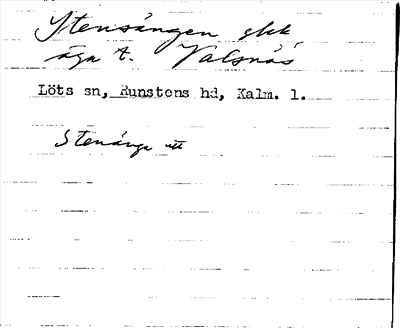 Stensången skk
äga t. Valsnäs
Löts sn, Runstens hd, Kalm. l.
Stenänga utt